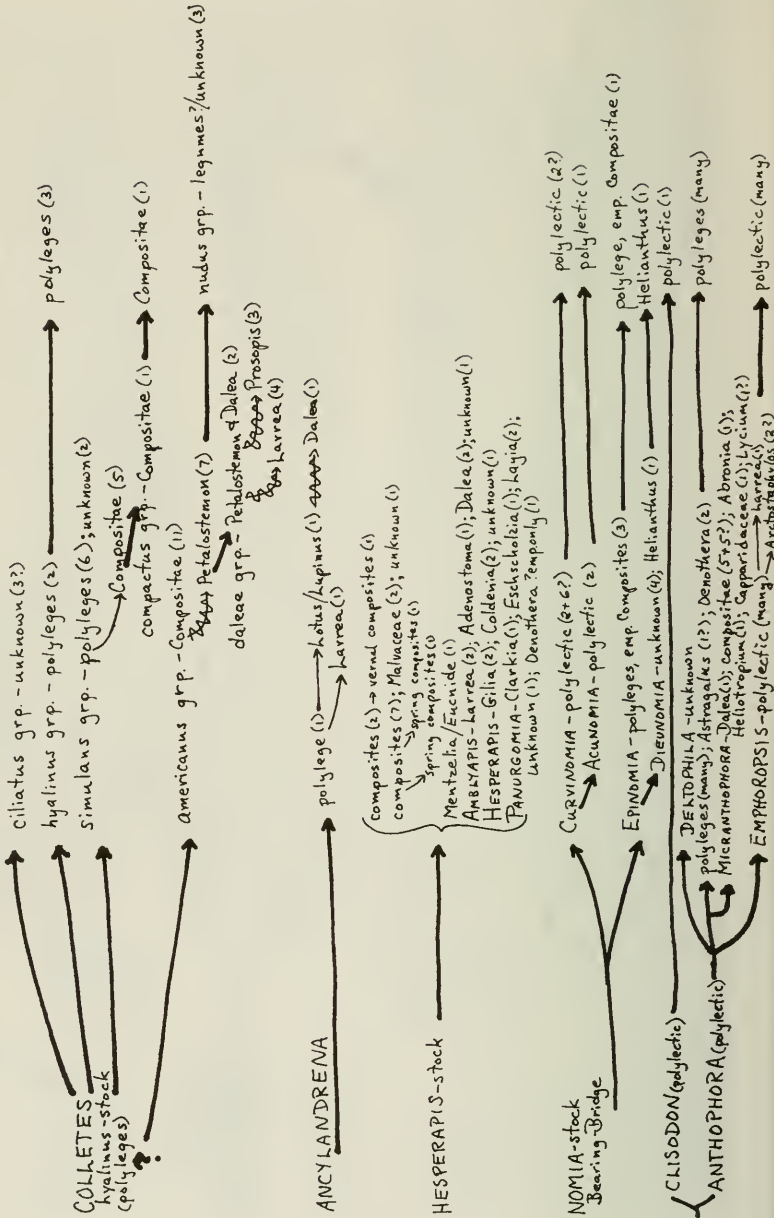 COLLETES
hyalinus-stock
(polyleges)
?
ciliatus grp.-unknown (3?)
hyalinus grp.-polyleges (2)
polyleges (3)
Simulans grp.-polyleges (6); unknown (2)
Compositae (5)
compactus grp.-Compositae (1)
Compositae (1)
americanus grp.-Compositae (11)
Petalostemon (7)
nudus grp.-legumes?/unknown (3)
daleae grp-Petalostemon & Dalea (2)
Prosopis (3)
Larrea (4)
ANCYLANDRENA
polylege (1)
Lotus/Lupinus (1)
Dalea (1)
Larrea (1)
HESPERAPIS-stock
Composites (2) → vernal composites (1)
composites (7); Malvaceae (2); unknown (1)
spring composites (1)
spring composites (1)
Mentzelia/Eucnide (1)
AMBLYAPIS-Larrea (2); Adenostoma (1); Dalea (2); unknown (1)
HESPERAPIS-Gilia (2); Coldenia (2); unknown (1)
PANURGOMIA-Clarkia (1); Eschscholzia (1); Layia (2);
unknown (1); Oenothera ?emponly (1)
NOMIA-stock
Bearing-Bridge
CURVINOMIA-polylectic (2+6?)
polylectic (2?)
ACUNOMIA-polylectic (2)
polylectic (1)
EPINOMIA-polyleges, emp. Composites (3)
polylege, emp. Compositae (1)
DIEUNOMIA-unknown (4); Helianthus (1)
Helianthus (1)
CLISODON (polylectic)
polylectic (1)
ANTHOPHORA (polylectic)
DELTOPHILA-unknown
polyleges (many); Astragalus (1?); Oenothera (2)
polyleges (many)
MICRANTHOPHORA-Dalea (1); compositae (5+5?); Abronia (1);
Heliotropium (1); Capparidaceae (1); Lycium (1?)
EMPHOROPSIS-polylectic (many)
Larrea (1)
polylectic (many)
Arctostaphylos (2?)